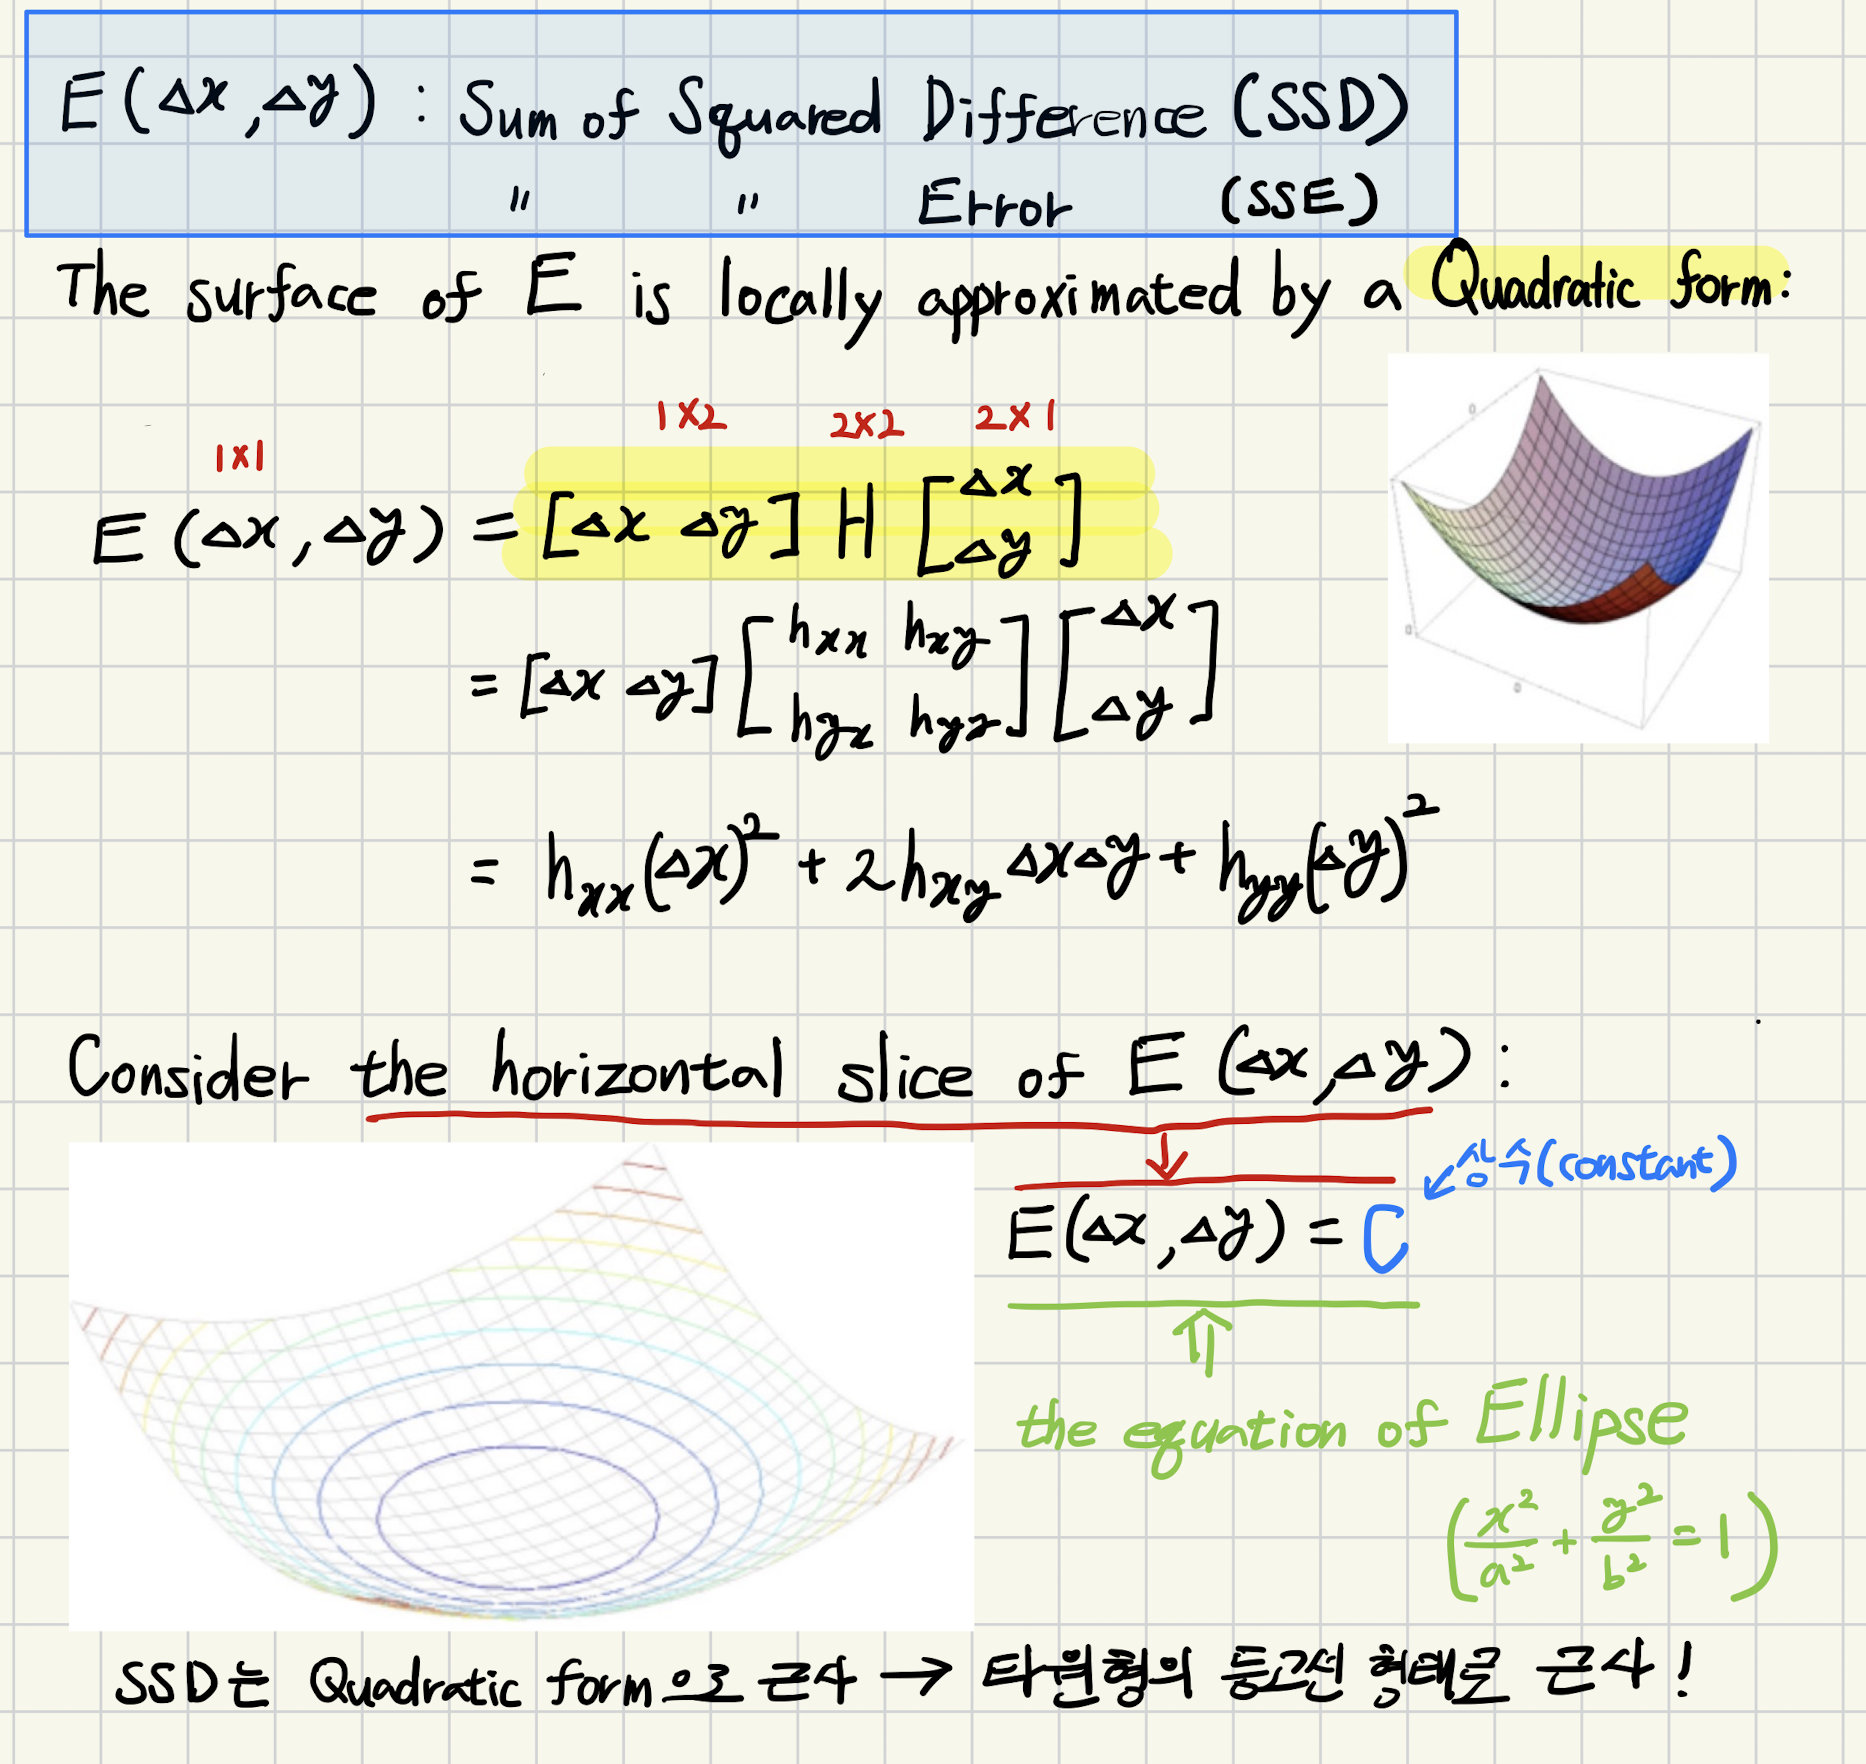 E(Δx,Δy) : Sum of Squared Difference (SSD)
" " Error (SSE)
The surface of E is locally approximated by a Quadratic form:
1×1 1×2 2×2 2×1
E(Δx,Δy) = [Δx Δy] H [Δx Δy]
= [Δx Δy] [hxx hxy hyx hyy] [Δx Δy]
= hxx(Δx)² + 2hxyΔxΔy + hyy(Δy)²
0
0
0
Consider the horizontal slice of E(Δx,Δy):
상수(constant)
E(Δx,Δy) = C
the equation of Ellipse
(x²/a² + y²/b² = 1)
SSD는 Quadratic form으로 근사 → 타원형의 등고선 형태로 근사!